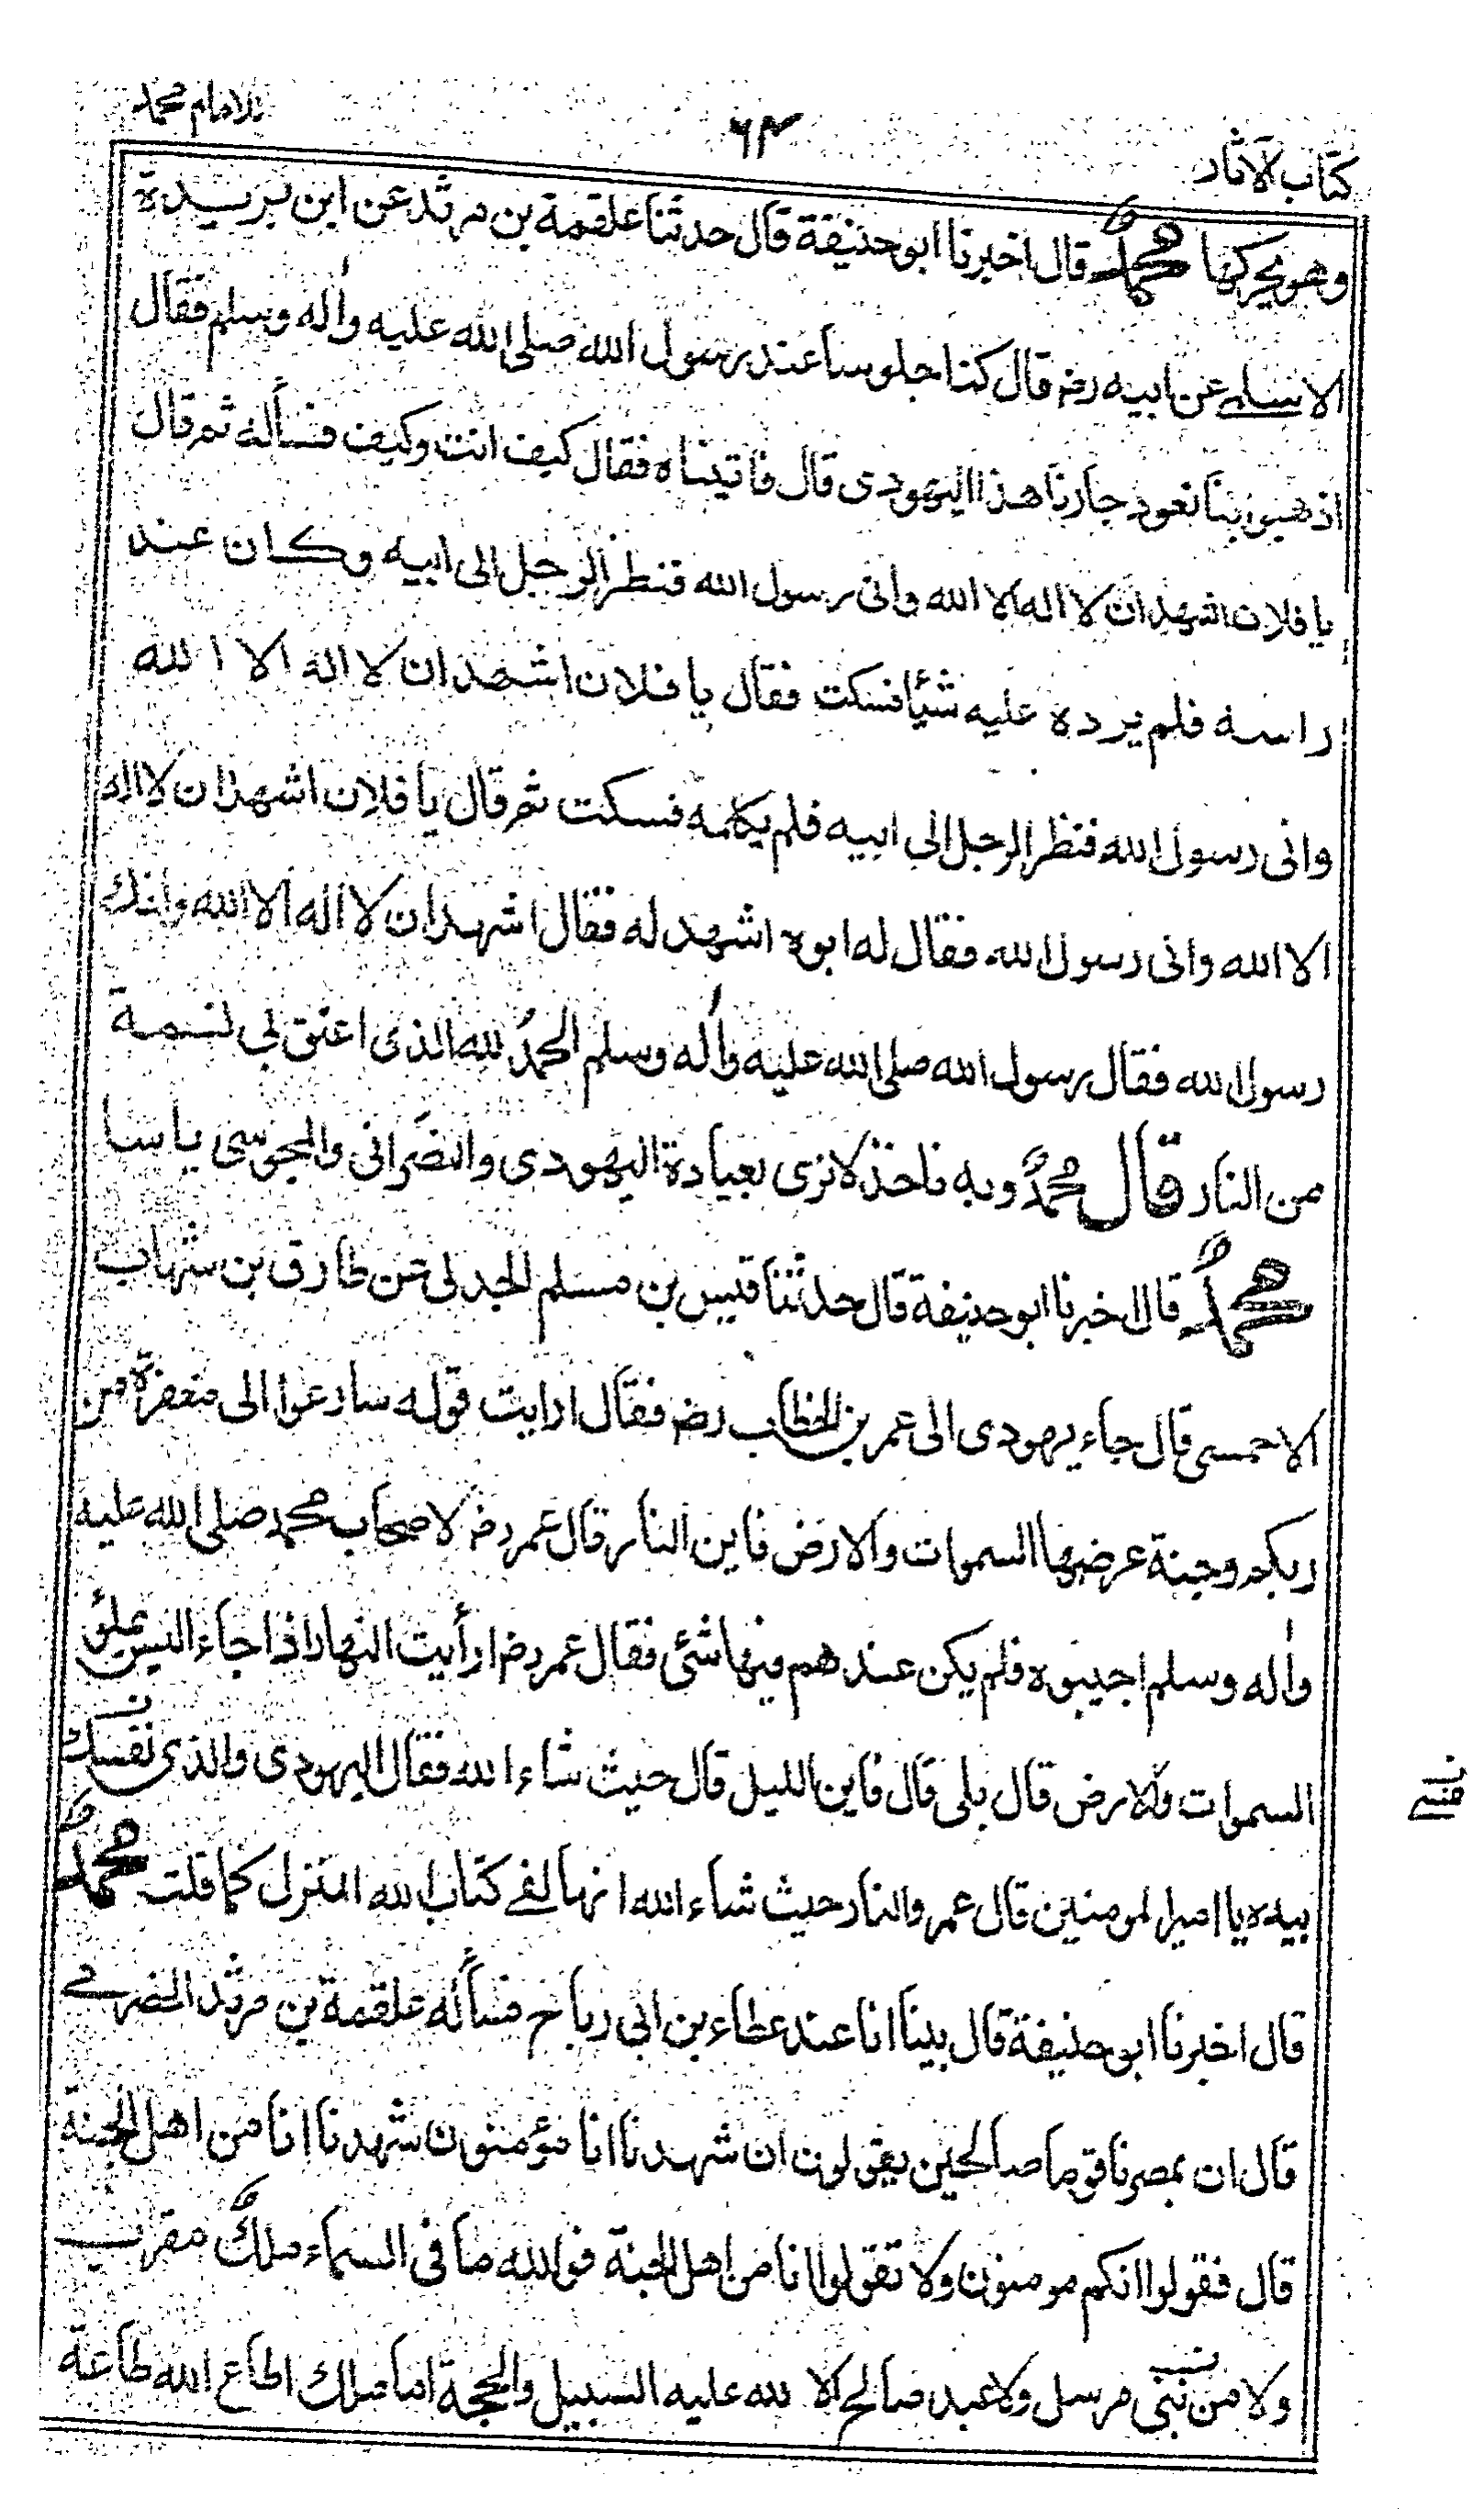 كتاب الآثار
٦٣
للامام محمد
وهو يحركها محمدٌ قال اخبرنا ابو حنيفة قال حدثنا علقمة بن مرثد عن ابن بريدة
الاسلمي عن ابيه رض قال كنا جلوسا عند رسول الله صلى الله عليه واٰله وسلم فقال
اذهبوا بنا نعود جارنا هذا اليهودى قال فاتيناه فقال كيف انت وكيف فسأله ثم قال
يا فلان اشهد ان لا اله الا الله وانى رسول الله فنظر الرجل الى ابيه وكان عند
راسه فلم يرده عليه شيئا فسكت فقال يا فلان اشهد ان لا اله الا الله
وانى رسول الله فنظر الرجل الى ابيه فلم يكلمه فسكت ثم قال يا فلان اشهد ان لا اله
الا الله وانى رسول الله فقال له ابوه اشهد له فقال اشهد ان لا اله الا الله وانك
رسول الله فقال رسول الله صلى الله عليه واٰله وسلم الحمدُ لله الذى اعتق بى نسمة
من النار قال محمدٌ وبه ناخذ لا نرى بعيادة اليهودى والنصرانى والمجوسى باسا
محمدٌ قال اخبرنا ابو حنيفة قال حدثنا قيس بن مسلم الجدلى عن طارق بن شهاب
الاحمسى قال جاء يهودى الى عمر بن الخطاب رض فقال ارايت قوله سارعوا الى مغفرة من
ربكم وجنة عرضها السموات والارض فاين النار قال عمر رض لاصحاب محمد صلى الله عليه
واٰله وسلم اجيبوه فلم يكن عندهم فيها شئى فقال عمر رض ارأيت النهار اذا جاء اليس يملؤ
السموات والارض قال بلى قال فاين الليل قال حيث شاء الله فقال اليهودى والذى نفسك
نفسي
بيده يا امير المومنين قال عمر والنار حيث شاء الله انها لفى كتاب الله المنزل كما قلت محمدٌ
قال اخبرنا ابو حنيفة قال بينا انا عند عطاء بن ابى رباح فسأله علقمة بن مرثد الحضرمى
قال ان بمصرنا قوما صالحين يقولون ان شهدنا انا مؤمنون شهدنا انا من اهل الجنة
قال فقولوا انكم مومنون ولا تقولوا انا من اهل الجنة فوالله ما فى السماء ملكٌ مقرب
ولا من نبى مرسل ولا عبد صالح الا لله عليه السبيل والحجة اما ملك اطاع الله طاعة